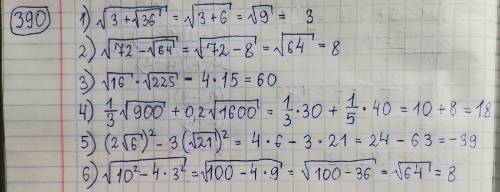 390
1) √(3+√36) = √(3+6) = √9 = 3
2) √(72-√64) = √(72-8) = √64 = 8
3) √16 · √225 - 4 · 15 = 60
4) 1/3 √900 + 0,2√1600 = 1/3 · 30 + 1/5 · 40 = 10 + 8 = 18
5) (2√6)² - 3(√21)² = 4 · 6 - 3 · 21 = 24 - 63 = -39
6) √(10² - 4 · 3²) = √(100 - 4 · 9) = √(100 - 36) = √64 = 8